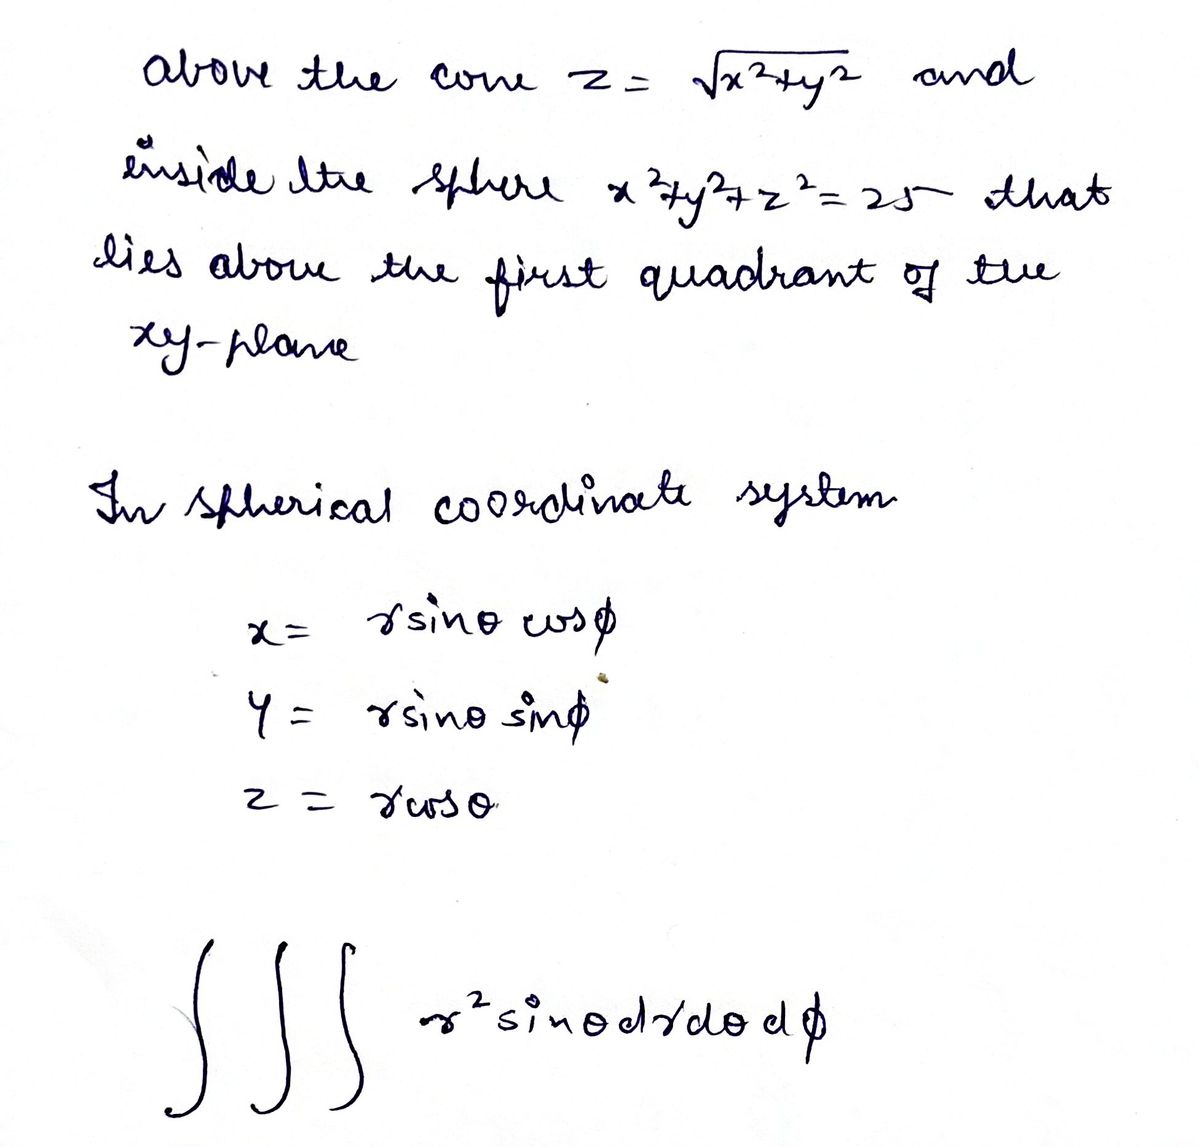 above the cone z = √x²+y² and
inside the sphere x²+y²+z²=25 that
lies above the first quadrant of the
xy-plane
In spherical coordinate system
x = rsinθ cosϕ
y = rsinθ sinϕ
z = rcosθ
∫∫∫ r²sinθdrdθdϕ